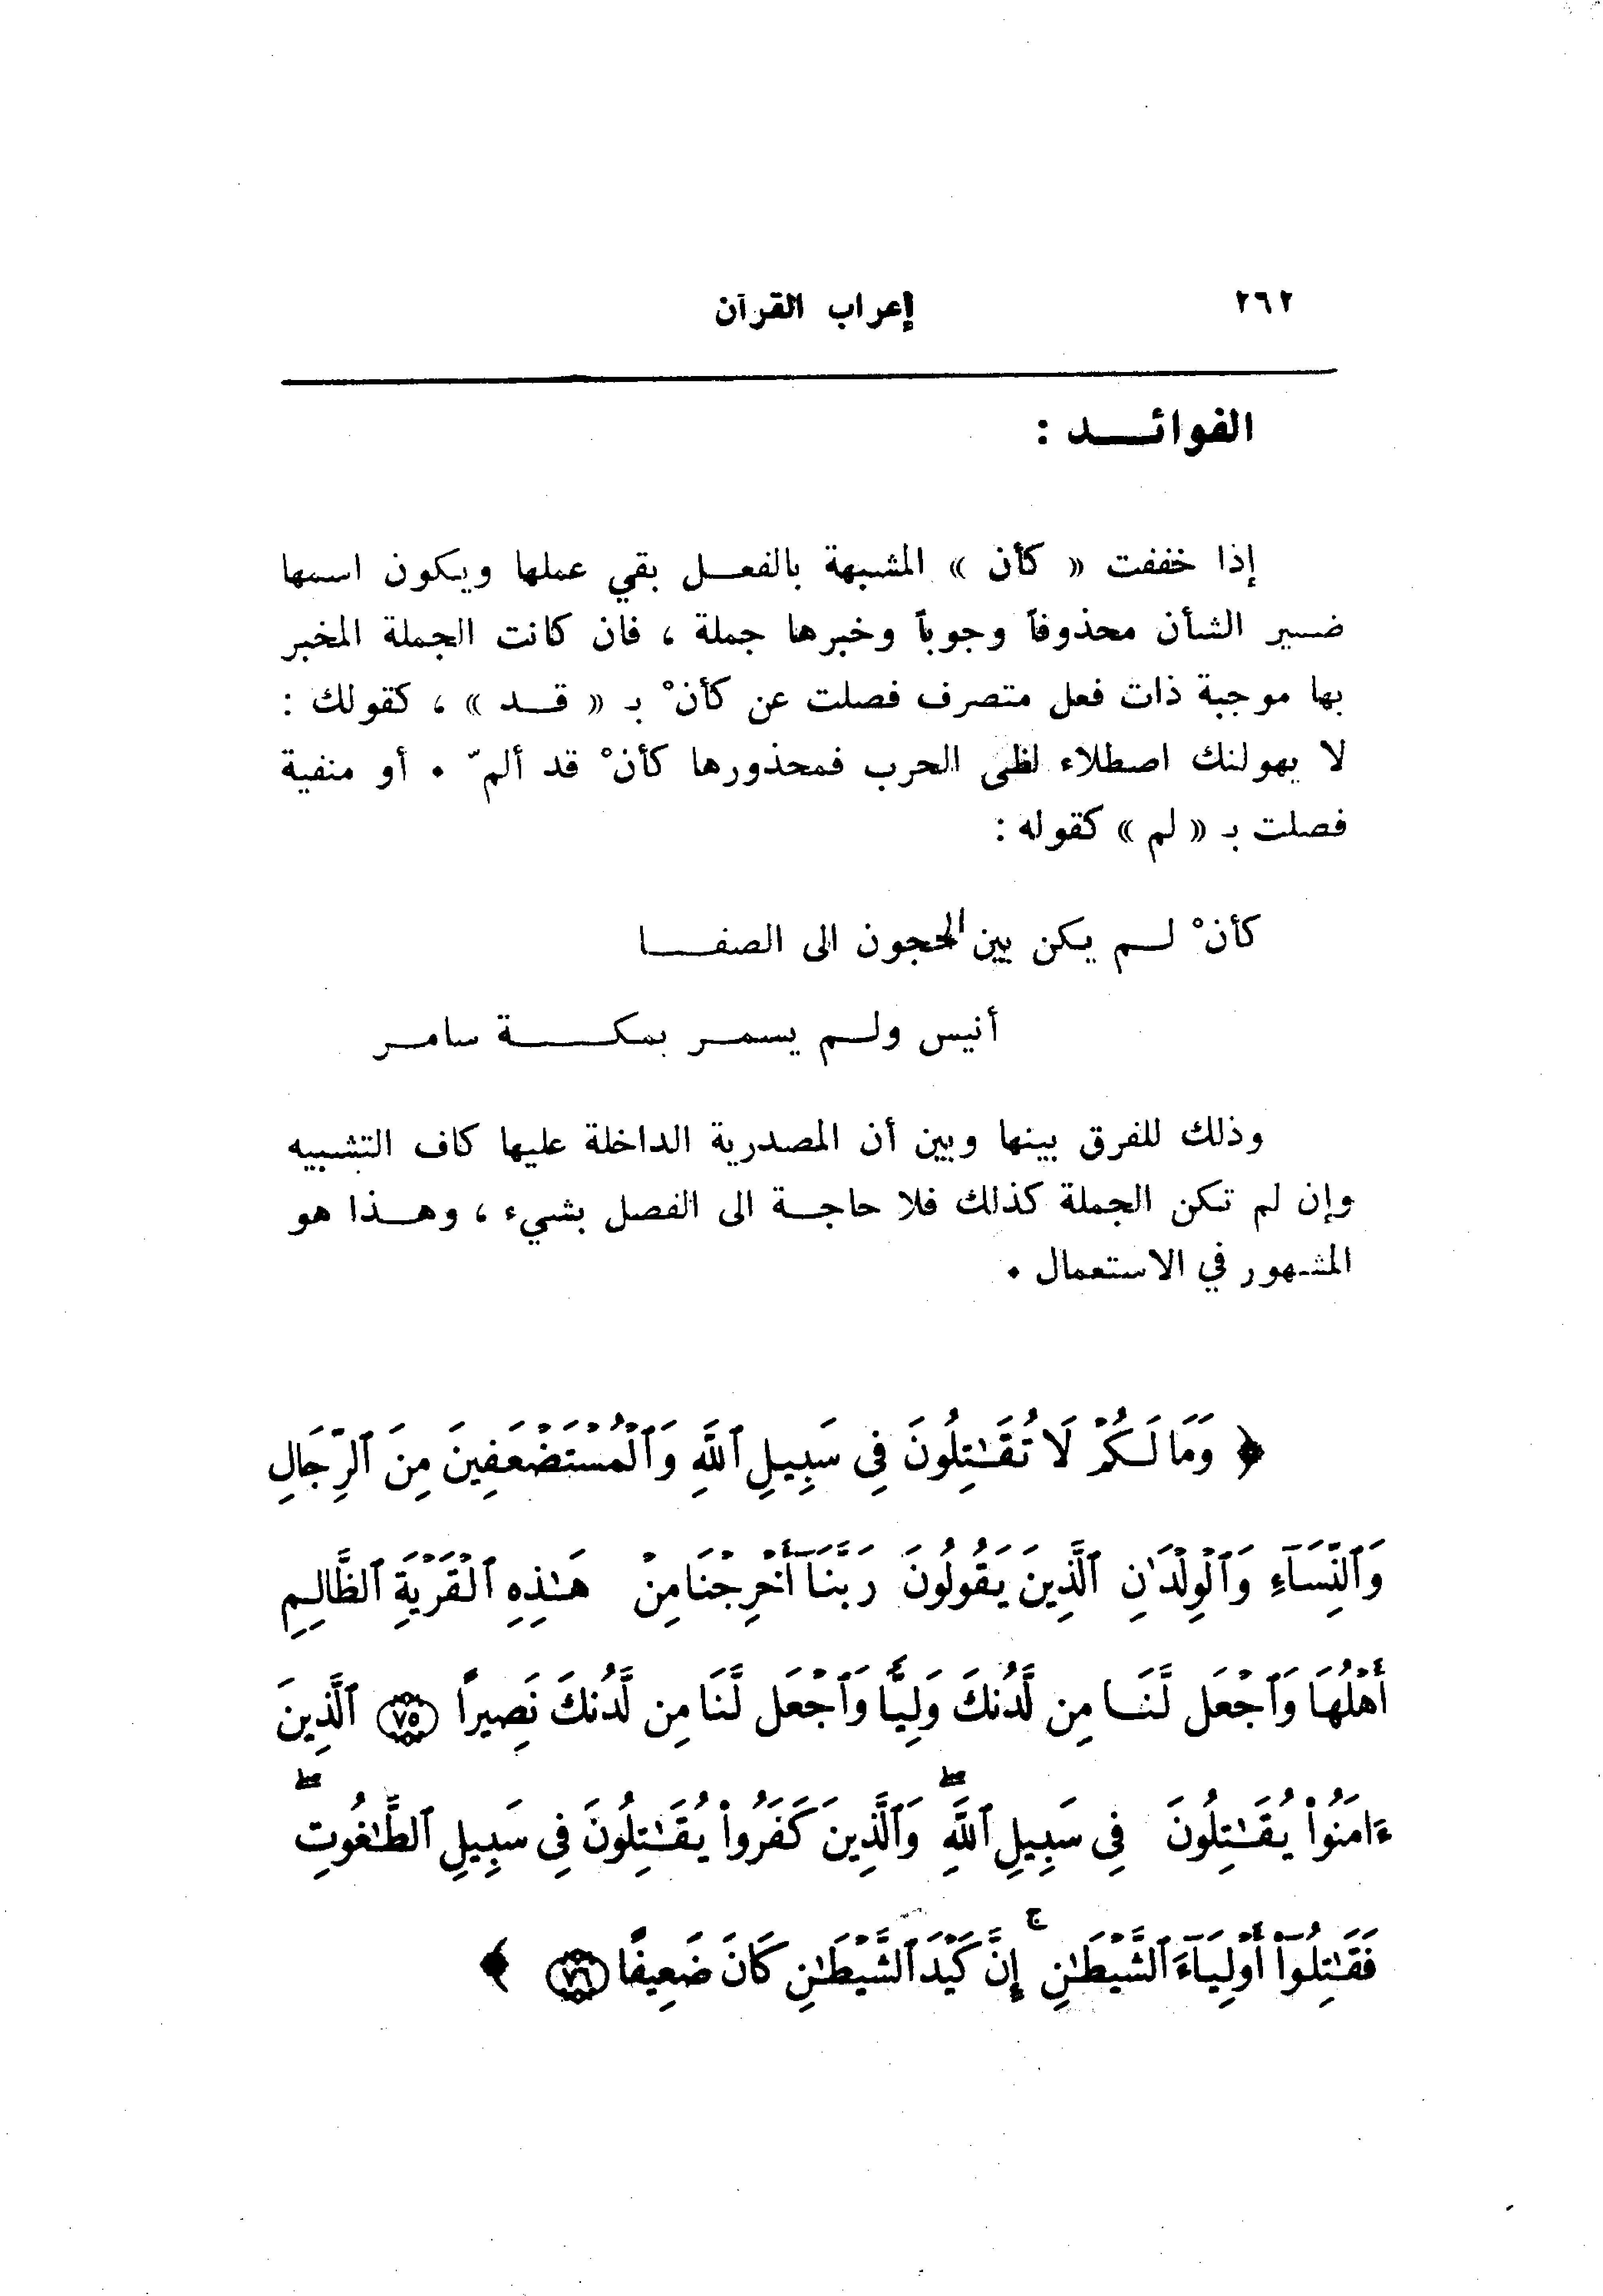 ٢٦٢ إعراب القرآن
الفوائـــد :
إذا خففت « كأن » المشبهة بالفعـل بقي عملها ويكون اسمها
ضـمير الشأن محذوفاً وجوباً وخبرها جملة ، فان كانت الجملة المخبر
بها موجبة ذات فعل متصرف فصلت عن كأنْ بـ « قـد » ، كقولك :
لا يهولنك اصطلاء لظى الحرب فمحذورها كأنْ قد ألمّ ٠ أو منفية
فصلت بـ « لم » كقوله :
كأنْ لـم يكن بين الحجون الى الصفـــا
أنيس ولـم يسمـر بمكـــة سامـر
وذلك للفرق بينها وبين أن المصدرية الداخلة عليها كاف التشبيه
وإن لم تكن الجملة كذلك فلا حاجـة الى الفصل بشيء ، وهـذا هو
المشهور في الاستعمال ٠
﴿ وَمَا لَكُمْ لَا تُقَٰتِلُونَ فِى سَبِيلِ ٱللَّهِ وَٱلْمُسْتَضْعَفِينَ مِنَ ٱلرِّجَالِ
وَٱلنِّسَآءِ وَٱلْوِلْدَٰنِ ٱلَّذِينَ يَقُولُونَ رَبَّنَآ أَخْرِجْنَا مِنْ هَٰذِهِ ٱلْقَرْيَةِ ٱلظَّالِمِ
أَهْلُهَا وَٱجْعَل لَّنَا مِن لَّدُنكَ وَلِيًّا وَٱجْعَل لَّنَا مِن لَّدُنكَ نَصِيرًا ﴿٧٥﴾ ٱلَّذِينَ
ءَامَنُوا۟ يُقَٰتِلُونَ فِى سَبِيلِ ٱللَّهِ ۖ وَٱلَّذِينَ كَفَرُوا۟ يُقَٰتِلُونَ فِى سَبِيلِ ٱلطَّٰغُوتِ ۖ
فَقَٰتِلُوٓا۟ أَوْلِيَآءَ ٱلشَّيْطَٰنِ ۚ إِنَّ كَيْدَ ٱلشَّيْطَٰنِ كَانَ ضَعِيفًا ﴿٧٦﴾ ﴾